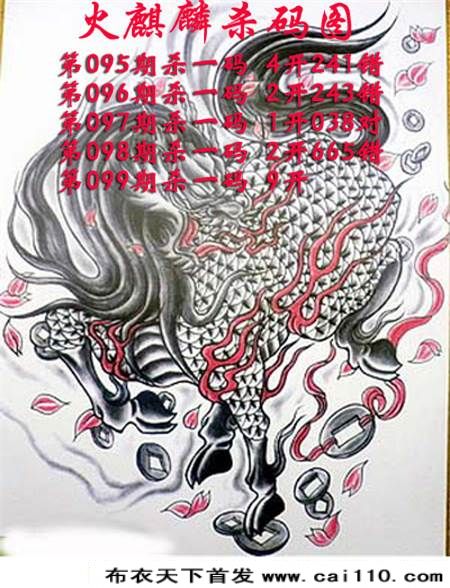 火麒麟杀码图
第095期杀一码 4开241错
第096期杀一码 2开243错
第097期杀一码 1开038对
第098期杀一码 2开665错
第099期杀一码 9开
布衣天下首发 www.cai110.com